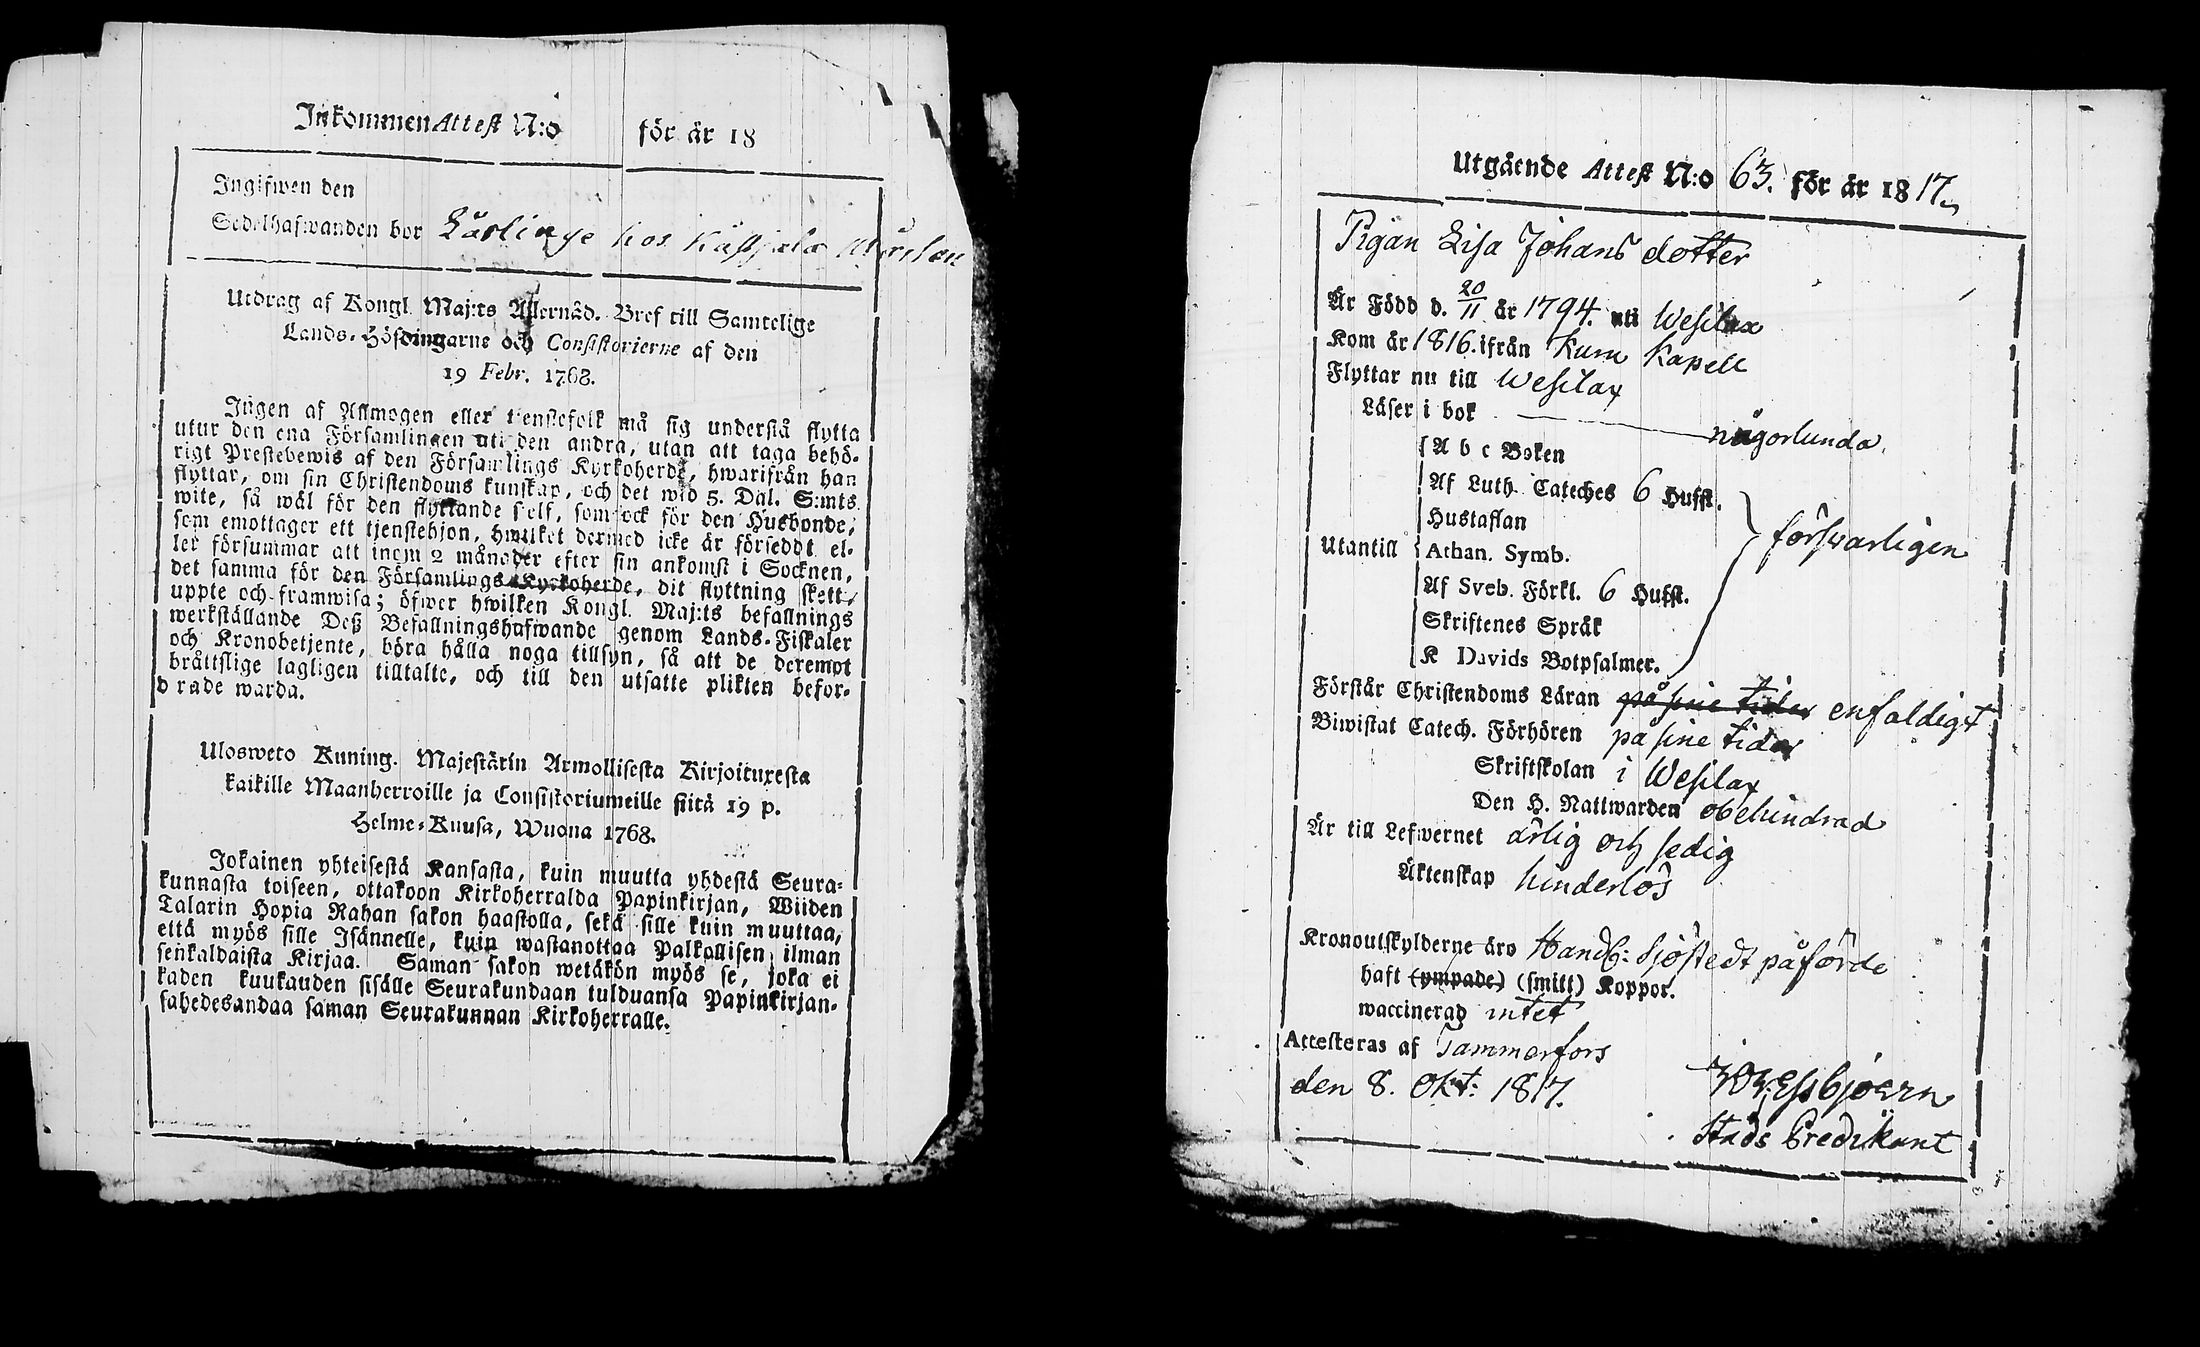 Inkommen Attest N:o för år 18
Ingifwen den
Sedelhafwanden bor Lårlinge hos
Utdrag af Kongl. Maj:ts Allernåd. Bref till Samtelige
Lands-Höfdingarne och Consistorierne af den
19 Febr. 1768.
Ingen af Allmogen eller tjenstefolk må sig understå flytta
utur den ena Församlingen uti den andra, utan att taga behö-
rigt Prestebewis af den Församlings Kyrkoherde, hwarifrån han
flyttar, om sin Christendoms kunskap, och det wid 5. Dal. S:mts
wite, så wäl för den flyttande self, som ock för den Husbonde,
som emottager ett tjenstehjon, hwilket dermed icke är förseddt el-
ler försummar att inom 2 månader efter sin ankomst i Socknen,
det samma för den Församlings Kyrkoherde, dit flyttning skett,
uppte och framwisa; öfwer hwilken Kongl. Maj:ts befallnings
werkställande Deß Befallningshafwande genom Lands-Fiskaler
och Kronobetjente, böra hålla noga tillsyn, så att de deremot
bråttslige lagligen tilltalte, och till den utsatte plikten befor-
drade warda.
Ulosweto Kuning. Majestärin Armollisesta Kirjoituxesta
kaikille Maanherroille ja Consistoriumeille siitä 19 p.
Helme-Kuusa, Wuona 1768.
Jokainen yhteisestä Kansasta, kuin muutta yhdestä Seura-
kunnasta toiseen, ottakoon Kirkoherralda Papinkirjan, Wiiden
Talarin Hopia Rahan sakon haastolla, sekä sille kuin muuttaa,
että myös sille Isännelle, kuin wastanottaa Palkollisen ilman
senkaldaista Kirjaa. Saman sakon wetäkön myös se, joka ei
kahden kuukauden sisälle Seurakundaan tulduansa Papinkirjan-
sa hedesandaa saman Seurakunnan Kirkoherralle.
Utgående Attest N:o 63. för år 1817.
Pigan Lisa Johans dotter
Är Född d. 20/11 år 1794. uti Wesilax
Kom år 1816. ifrån Kuru Kapell
Flyttar nu till Wesilax
Läser i bok någorlunda.
A b c Boken
Af Luth. Cateches 6 Hufst.
Hustaflan
Utantill Athan. Symb. försvarligen
Af Sveb. Förkl. 6 Hufst.
Skriftenes Språk
K Davids Botpsalmer.
Förstår Christendoms Läran på sine tider enfaldigt
Biwistat Catech. Förhören på sine tider
Skriftskolan i Wesilax
Den H. Nattwarden obehindrad
Är till Lefwernet ärlig och sedig
Äktenskap hinderlös
Kronoutskylderne äro Handl: Sjöstedt påförde
haft (ympade) (smitt) Koppor.
waccinerad intet
Attesteras af Tammerfors
den 8. Okt: 1817.
Stads Predikant